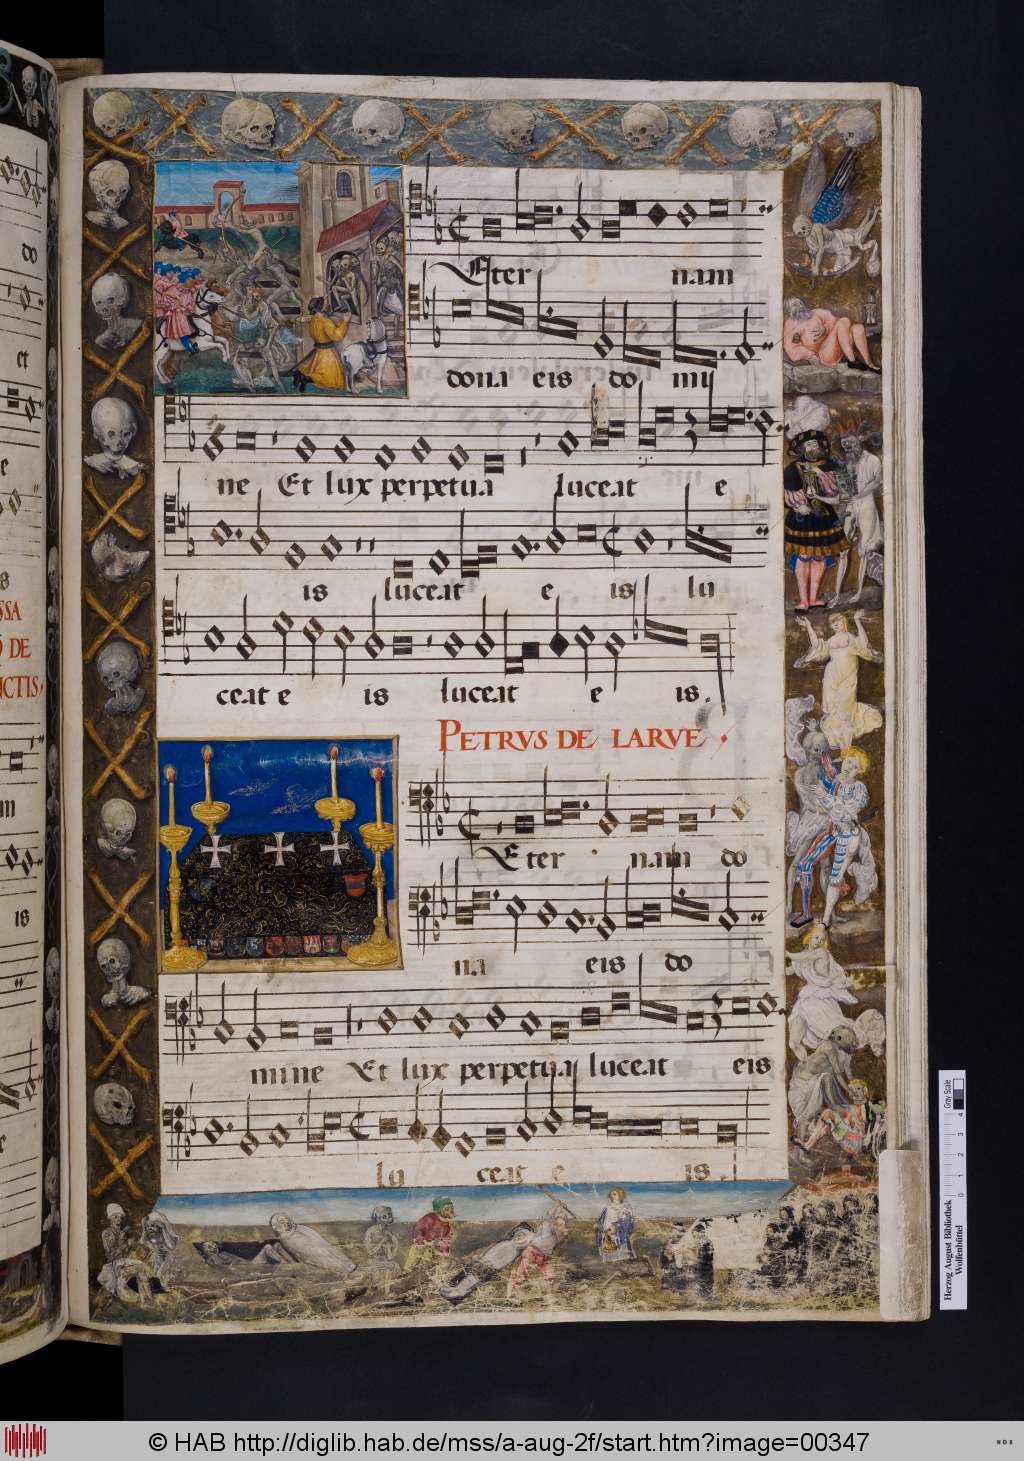 do
et
e
s
SSA
DE
NCTIS
m
is
e
Eter nam
dona eis do mi
ne Et lux perpetua luceat e
is luceat e is lu
ceat e is luceat e is.
PETRVS DE LARVE
Eter nam do
na eis do
mine Et lux perpetua luceat eis
lu ceat e is.
Herzog August Bibliothek
Wolfenbüttel
0 1 2 3 4
Gray Scale
© HAB http://diglib.hab.de/mss/a-aug-2f/start.htm?image=00347